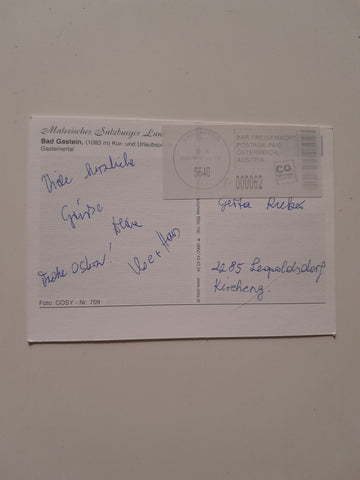 Malerisches Salzburger Lan
Bad Gastein, (1083 m) Kur- und Urlaubso
Gasteinertal
Viele herzliche
Grüße
Frohe Ostern!
Foto: COSY - Nr. 709
5640
BAR FREIGEMACHT
POSTAGE PAID
ÖSTERREICH
AUSTRIA
000062
CO
www.cosy.at
2285 Leopoldsdorf
Kircheng.